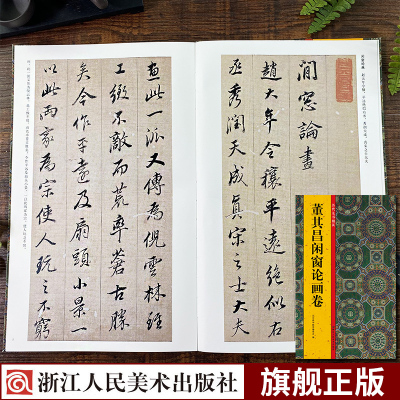 閒窓論畫
趙大年令穰平遠絶似右
丞秀潤天成真宗之士大夫
畫此一派又傳為倪雲林雖
工緻不敵而荒率蒼古勝
矣今作平遠及扇頭小景一
以此兩家為宗使人玩之不窮
董其昌闲窗论画卷
浙江人民美术出版社
旗舰正版